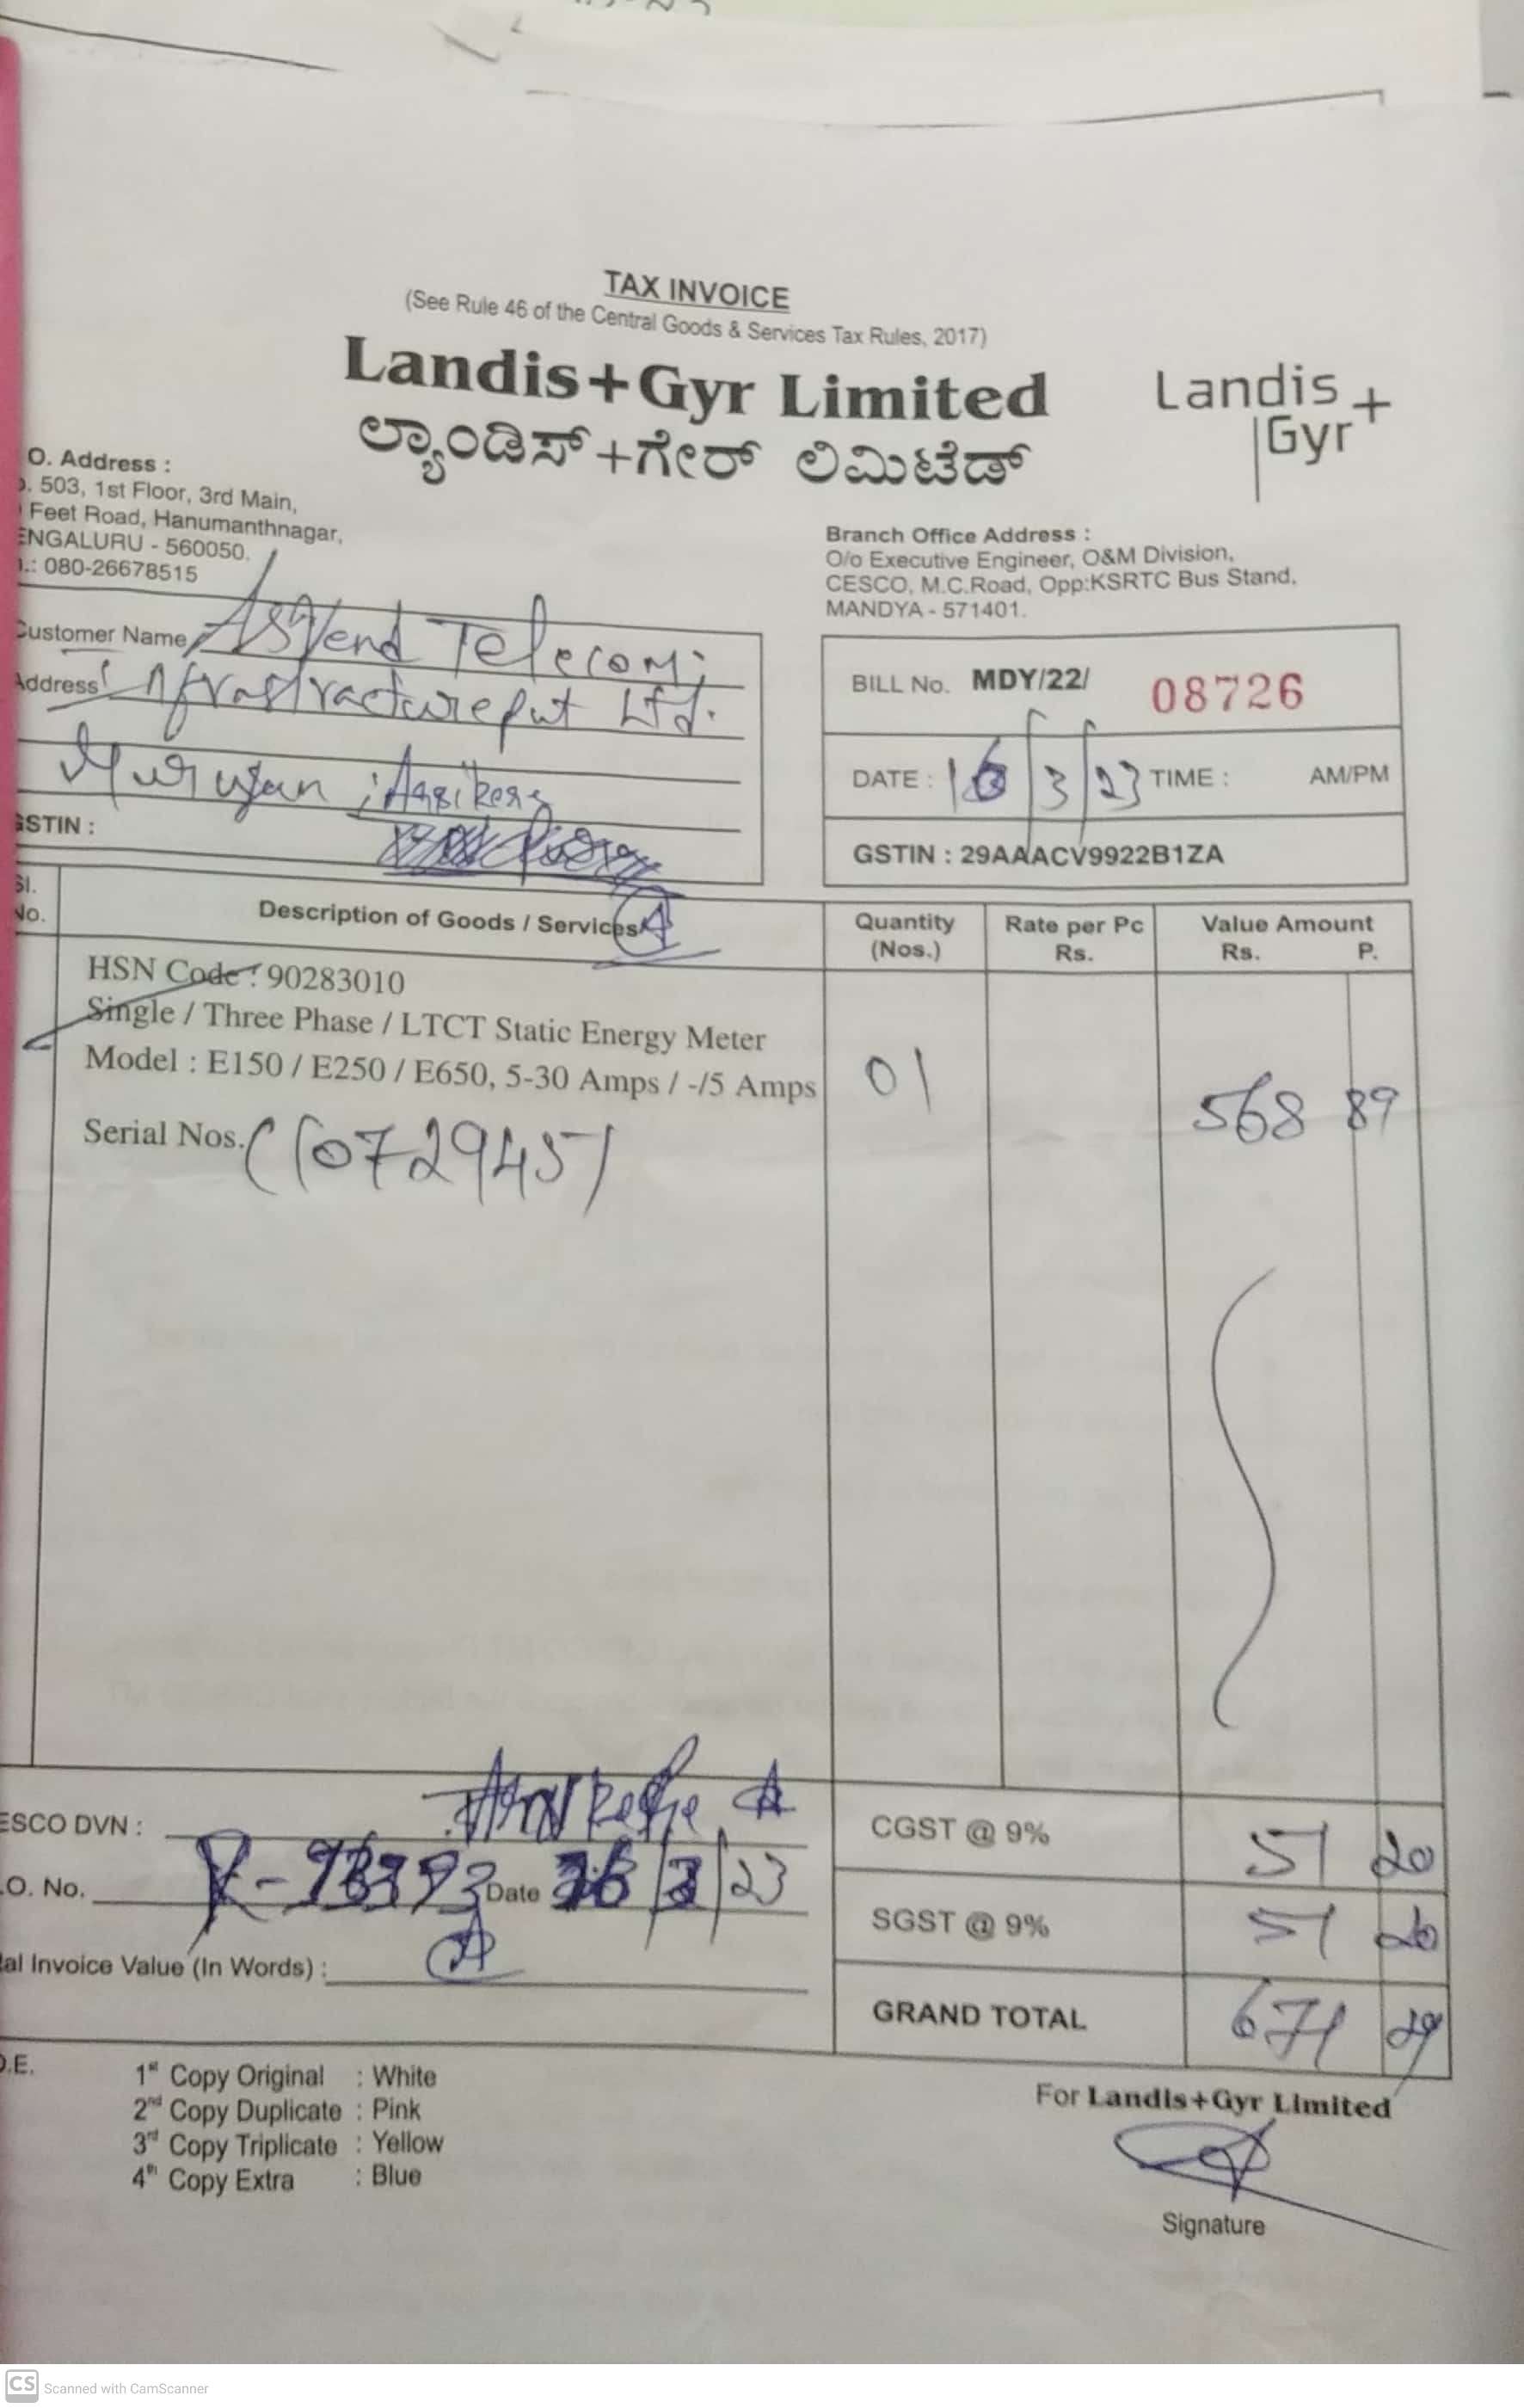 TAX INVOICE
(See Rule 46 of the Central Goods & Services Tax Rules, 2017)
Landis+Gyr Limited
ಲ್ಯಾಂಡಿಸ್+ಗೇರ್ ಲಿಮಿಟೆಡ್
Landis+
Gyr
O. Address :
. 503, 1st Floor, 3rd Main,
Feet Road, Hanumanthnagar,
ENGALURU - 560050.
.: 080-26678515
Branch Office Address :
O/o Executive Engineer, O&M Division,
CESCO, M.C.Road, Opp:KSRTC Bus Stand,
MANDYA - 571401.
Customer Name Telecom
Address Ltd.
GSTIN :
BILL No. MDY/22/ 08726
DATE : 16/3/23 TIME : AM/PM
GSTIN : 29AAACV9922B1ZA
Sl. No. Description of Goods / Services Quantity (Nos.) Rate per Pc Rs. Value Amount Rs. P.
HSN Code : 90283010
Single / Three Phase / LTCT Static Energy Meter
Model : E150 / E250 / E650, 5-30 Amps / -/5 Amps 01 568 89
Serial Nos.
ESCO DVN :
CGST @ 9% 51 20
.O. No. Date /23
SGST @ 9% 51 20
al Invoice Value (In Words) :
GRAND TOTAL 671 29
O.E.
1st Copy Original : White
2nd Copy Duplicate : Pink
3rd Copy Triplicate : Yellow
4th Copy Extra : Blue
For Landis+Gyr Limited
Signature
CS Scanned with CamScanner